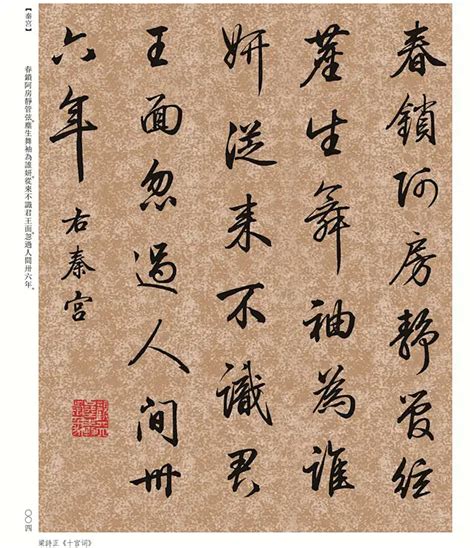 春鎖阿房靜管絃
塵生舞袖為誰
妍從來不識君
王面忽過人間卅
六年 右秦宮
【秦宮】
春鎖阿房靜管弦。塵生舞袖為誰妍。從來不識君王面。忽過人間卅六年。
〇〇四
梁詩正《十宫词》